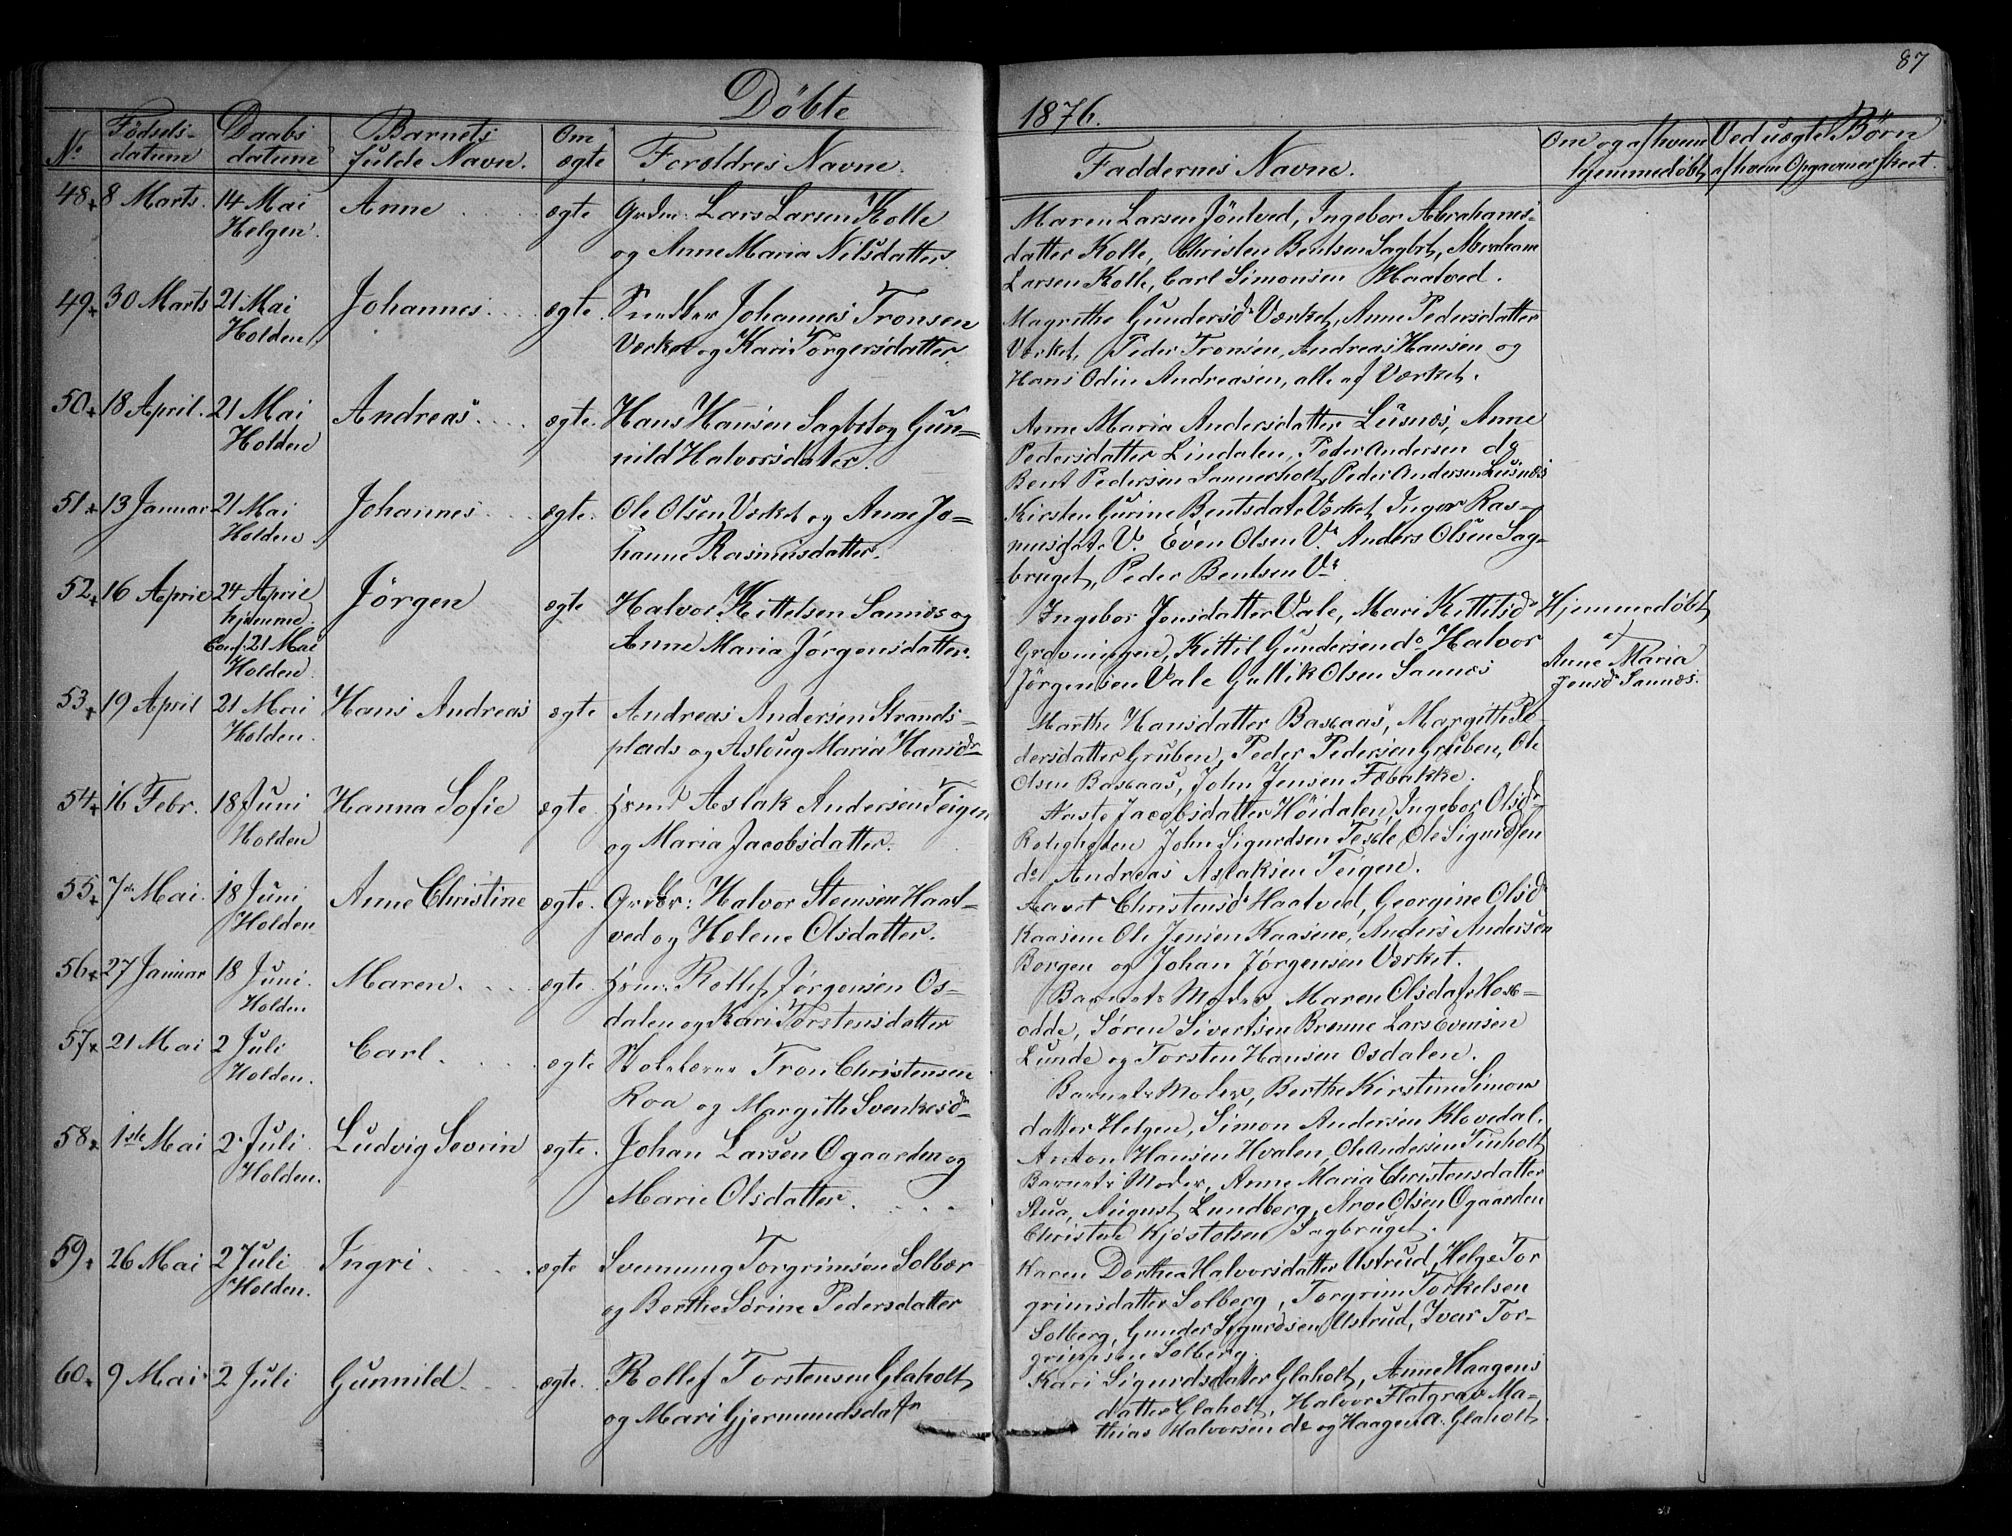 87
Döbte 1876.
No Födsels-datum Daabs datum Barnets fulde Navn. Om ægte Forældres Navne. Faddernes Navne. Om og af hvem hjemmedøbt Ved uægte Börn af hvem Opgaven er skeet.
48 8 Marts. 14 Mai Helgen. Anne ægte Grdm. Lars Larsen Kolle
og Anne Maria Nilsdatter.
Maren Larsen Jöntved, Ingebor Abrahams-
datter Kolle, Christen Bentsen Sagbrt, Abraham
Larsen Kolle, Carl Simonsen Haatved.
49 30 Marts 21 Mai Holden. Johannes ægte. Snedker Johannes Tronsen
Værket og Kari Torgersdatter.
Magrethe Gundersdr Værket, Anne Pedersdatter
Værket, Peder Tronsen, Andreas Hansen og
Hans Odin Andreasen, alle af Værket.
50 18 April. 21 Mai Holden Andreas ægte. Hans Hansen Sagbrt og Gun-
nild Halvorsdatter.
Anne Maria Andersdatter Lusnæs, Anne
Pedersdatter Lindalen, Peder Andersen og
Bent Pedersen Sannerholt, Peder Andersen Lusnæs
51 13 Januar 21 Mai Holden Johannes ægte. Ole Olsen Værket og Anne Jo-
hanne Rasmusdatter.
Kirsten Gurine Bentsdatr Værket Inger Ras-
musdatr V. Even Olsen V. Anders Olsen Sag-
bruget, Peder Bentsen V.
52 16 April 24 April hjemme. Conf. 21 Mai Holden. Jörgen ægte Halvor Kittelsen Sannæs og
Anne Maria Jörgensdatter.
Ingebor Jensdatter Vale, Mari Kittilsdr
Grovningen, Kittil Gundersen do Halvor
Jørgensen Vale Gullik Olsen Sannæs
Hjemmedöbt
af
Anne Maria
Jensdr Sannæs.
53 19 April 21 Mai Holden. Hans Andreas ægte Andreas Andersen Strands-
plads og Aslaug Maria Hansdr
Marthe Hansdatter Basaas, Margithe Pe-
dersdatter Gruben, Peder Pedersen Gruben, Ole
Olsen Basaas, John Jensen Fæbakke.
54 16 Febr. 18 Juni Holden Hanna Sofie ægte. Hsmd Aslak Andersen Teigen
og Maria Jacobsdatter.
Aaste Jacobsdatter Höidalen, Ingebor Olsdr
Roligheden John Sigurdsen Texle, Ole Sigurdsen
do Andreas Aslaksen Teigen.
55 7de Mai. 18 Juni Holden Anne Christine ægte. Grdbr: Halvor Steinsen Haat-
ved og Helene Olsdatter.
Aaset Christensdr Haatved, Georgine Olsdr
Kaasene Ole Jensen Kaasene, Anders Andersen
Borgen og Johan Jørgensen Værket.
56 27 Januar 18 Juni. Holden Maren. ægte. Hsm. Rollef Jørgensen Os-
dalen og Kari Torstensdatter
Barnets Moder, Maren Olsdatr
odde, Søren Sivertsen Brenne Lars Evensen
Lunde og Torsten Hansen Osdalen.
57 21 Mai 2 Juli Holden. Carl. ægte Skolelærer Tron Christensen
Roa og Margith Svenkesdr
Barnets Moder, Berthe Kirstine Simons
datter Helgen, Simon Andersen Klovedal.
Anton Hansen Hvalen, Ole Andersen Tinholt
58 1ste Mai 2 Juli Holden. Ludvig Sevrin ægte. Johan Larsen Ogaarden og
Marie Olsdatter.
Barnets Moder, Anne Maria Christensdatter
Stua, August Lundberg, Arve Olsen Ogaarden
Christen Kjöstolsen Sagbruget.
59 26 Mai 2 Juli Holden. Ingri ægte Svennung Torgrimsen Solber
og Berthe Sörine Pedersdatter
Karen Dorthea Halvorsdatter Ustrud, Helge Tor
grimsdatter Solberg, Torgrim Torkelsen
Solberg, Gunder Sigurdsen Ustrud, Ivar Tor-
grimsen Solberg.
60 9 Mai 2 Juli Gunnild ægte. Rollef Torstensen Glaholt
og Mari Gjermundsdatr
Kari Sigurdsdatter Glaholt, Anne Haagens
datter Glaholt, Halvor Flatgrav Ma-
thias Halvorsen do og Haagen A. Glaholt.